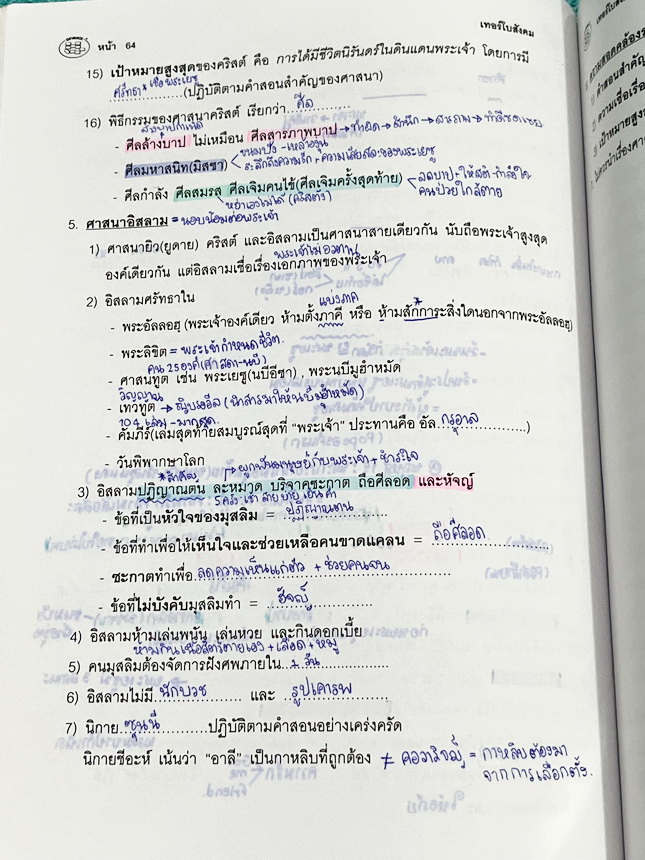 หน้า 64
เทอร์โบสังคม
15) เป้าหมายสูงสุดของคริสต์ คือ การได้มีชีวิตนิรันดร์ในดินแดนพระเจ้า โดยการมี
ศรัทธา* เชื่อพระเยซู
(ปฏิบัติตามคำสอนสำคัญของศาสนา)
16) พิธีกรรมของศาสนาคริสต์ เรียกว่า ศีล
- ศีลล้างบาป ไม่เหมือน ศีลสารภาพบาป → ทำผิด → สำนึก →
ขนมปัง - เหล้าองุ่น
- ศีลมหาสนิท(มิสซา)
ระลึกถึงความรัก + ความเสียสละของพระเยซู
- ศีลกำลัง ศีลสมรส ศีลเจิมคนไข้(ศีลเจิมครั้งสุดท้าย)
ลดบาป + ให้สติ - กำลังใจ
คนป่วยใกล้ตาย
หย่าเองไม่ได้ (คริสตัง)
5. ศาสนาอิสลาม = นอบน้อมต่อพระเจ้า
1) ศาสนายิว(ยูดาย) คริสต์ และอิสลามเป็นศาสนาสายเดียวกัน นับถือพระเจ้าสูงสุด
พระเจ้าไม่อวตาร
องค์เดียวกัน แต่อิสลามเชื่อเรื่องเอกภาพของพระเจ้า
2) อิสลามศรัทธาใน
แบ่งภาค
- พระอัลลอฮฺ (พระเจ้าองค์เดียว ห้ามตั้งภาคี หรือ ห้ามสักการะสิ่งใดนอกจากพระอัลลอฮฺ)
- พระลิขิต = พระเจ้ากำหนดชีวิต
คน 25 องค์ (ศาสดา-นบี)
- ศาสนทูต เช่น พระเยซู(นบีอีซา) , พระนบีมูฮำหมัด
วิญญาณ
- เทวทูต → ญิบรออีล (นำสารมาให้นบีมูฮำหมัด)
104 เล่ม - มากสุด
- คัมภีร์(เล่มสุดท้ายสมบูรณ์สุดที่ "พระเจ้า" ประทานคือ อัล กุรอาน )
- วันพิพากษาโลก
*สำคัญ
→ ผูกพันมนุษย์กับพระเจ้า + ชำระใจ
3) อิสลามปฏิญาณตน ละหมาด บริจาคซะกาต ถือศีลอด และหัจญ์
5 ครั้ง : เช้า สาย บ่าย เย็น ค่ำ
- ข้อที่เป็นหัวใจของมุสลิม = ปฏิญาณตน
- ข้อที่ทำเพื่อให้เห็นใจและช่วยเหลือคนขาดแคลน = ถือศีลอด
- ซะกาตทำเพื่อ ลดความเห็นแก่ตัว + ช่วยคนจน
- ข้อที่ไม่บังคับมุสลิมทำ = ฮัจญ์
4) อิสลามห้ามเล่นพนัน เล่นหวย และกินดอกเบี้ย
ห้ามกินเนื้อสัตว์ตายเอง + เลือด + หมู
5) คนมุสลิมต้องจัดการฝังศพภายใน 1 วัน
6) อิสลามไม่มี นักบวช และ รูปเคารพ
7) นิกาย ซุนนี ปฏิบัติตามคำสอนอย่างเคร่งครัด
นิกายชีอะห์ เน้นว่า "อาลี" เป็นกาหลิบที่ถูกต้อง ≠ คอวาริจญ์ = กาหลิบต้องมา
จากการเลือกตั้ง.